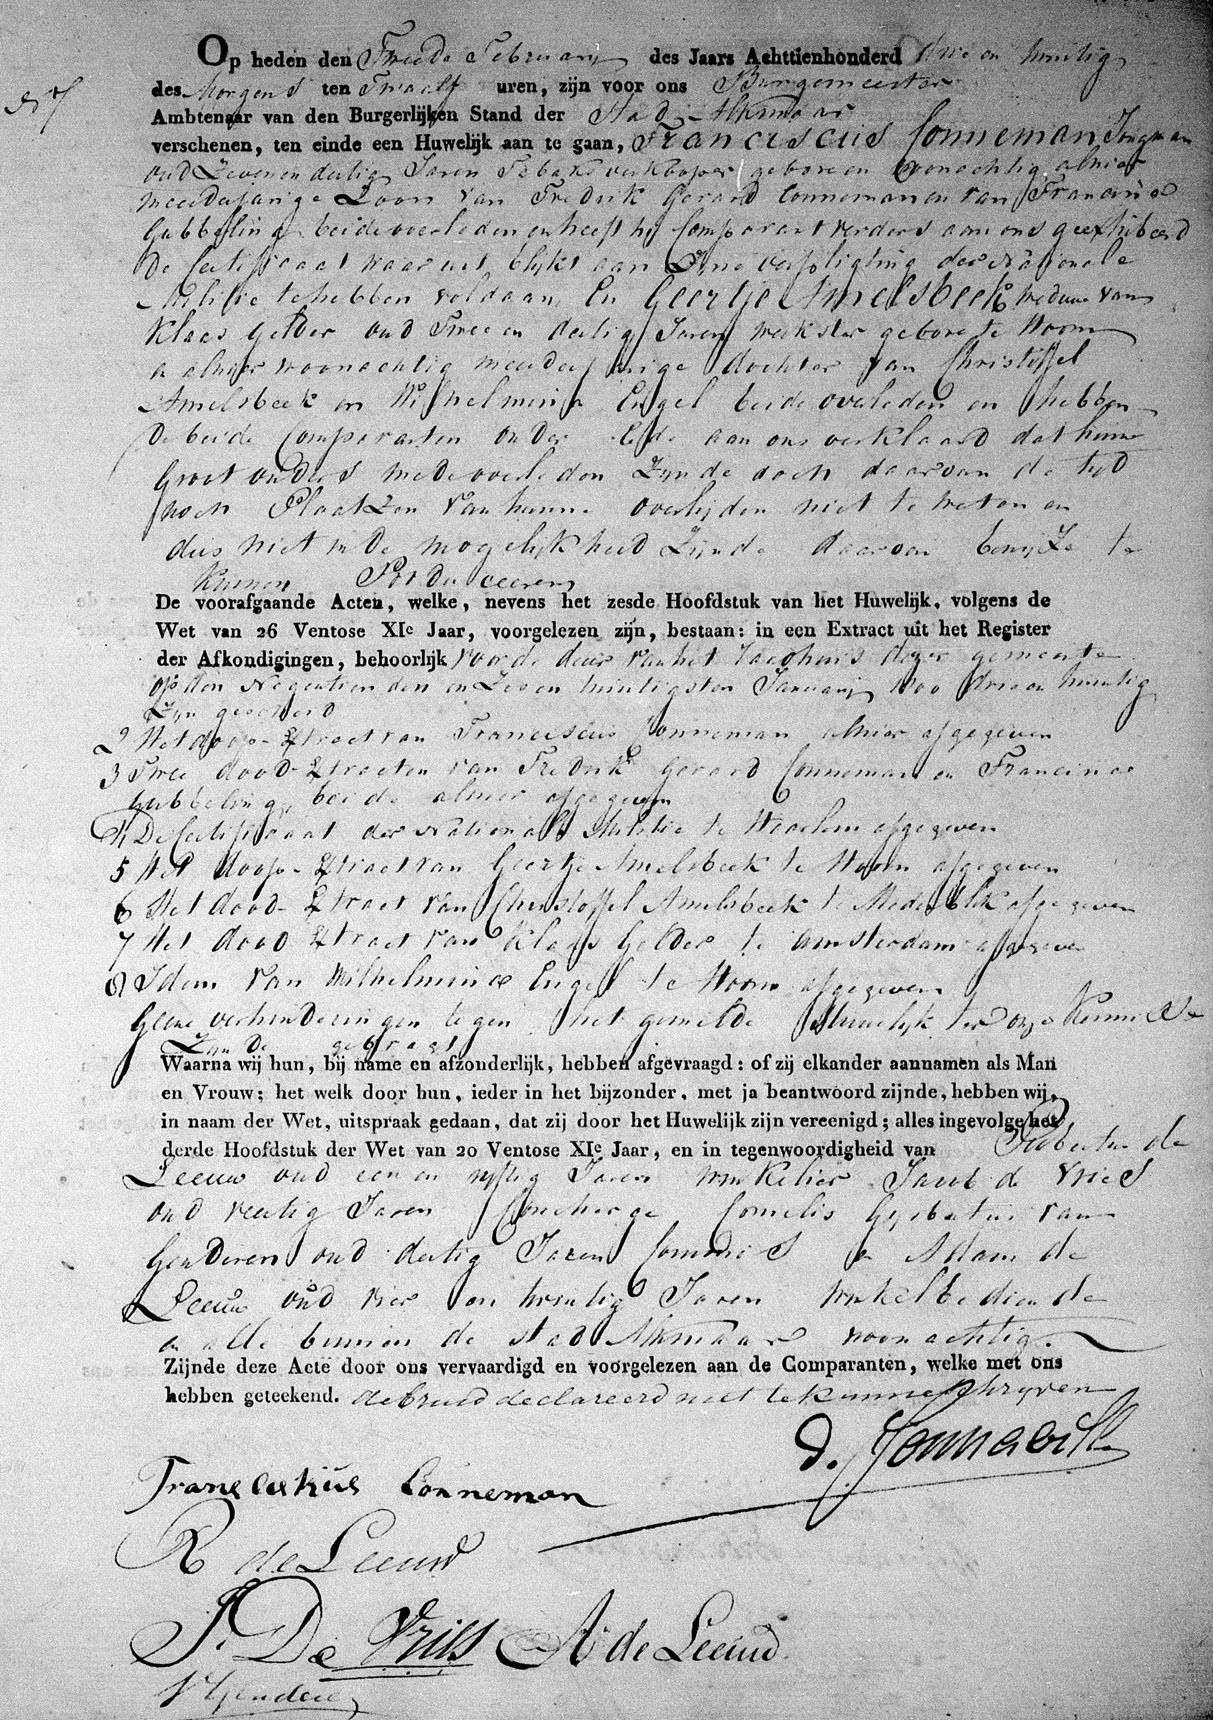 Op heden den Tweede Februarij des Jaars Achttienhonderd drie en twintig
des Morgens ten Twaalf uren, zijn voor ons Burgemeester
N 7
Ambtenaar van den Burgerlijken Stand der Stad Alkmaar
verschenen, ten einde een Huwelijk aan te gaan, Franciscus Conneman Jongman
oud Zeven en dertig Jaren Tabaks verkooper geboren en woonachtig alhier
meerderjarige Zoon van Fredrik Gerard Conneman en van Francina
Gubbeling beide overleden en heeft hij Comparant verders aan ons geexhibeerd
De Certificaat waar uit blijkt aan Zijne verpligting der Nationale
Militie te hebben voldaan, En Geertje Amelsbeek weduwe van
Klaas Gelder oud Twee en dertig Jaren werkster gebore te Hoorn
en alhier woonachtig meerderjarige dochter van Christoffel
Amelsbeek en Wilhelmina Engel beide overleden en hebben
De beide Comparanten onder Eede aan ons verklaard dat hunne
Groot ouders mede overleden Zijnde doch daarvan de tijd
noch Plaatzen van hunne overlijden niet te weten en
dus niet in De mogelijkheid Zijnde daarvan bewijze te
kunnen Porduceeren
De voorafgaande Acten, welke, nevens het zesde Hoofdstuk van het Huwelijk, volgens de
Wet van 26 Ventose XIe Jaar, voorgelezen zijn, bestaan: in een Extract uit het Register
der Afkondigingen, behoorlijk voor de deur van het dezer gemeente
op den Negentienden en Zes en twintigsten Januarij 1800 drie en twintig
Zijn geschied
2 Het doop-Extract van Franciscus Conneman alhier afgegeven
3 Twee dood-Extracten van Fredrik Gerard Conneman en Francina
Gubbeling, beide alhier afgegeven
4 De Certificaat der Nationale Militie te Haarlem afgegeven
5 Het doop-Extract van Geertje Amelsbeek te Hoorn afgegeven
6 Het dood-Extract van Christoffel Amelsbeek te Medemblik afgegeven
7 Het dood Extract van Klaas Gelder te amsterdam afgegeve
8 Idem van Wilhelmina Engel te Hoorn afgegeven
Geene verhinderingen tegen het gemelde Huwelijk ter onze Kennisse
Zijnde gebragt
Waarna wij hun, bij name en afzonderlijk, hebben afgevraagd: of zij elkander aannamen als Man
en Vrouw; het welk door hun, ieder in het bijzonder, met ja beantwoord zijnde, hebben wij,
in naam der Wet, uitspraak gedaan, dat zij door het Huwelijk zijn vereenigd; alles ingevolge het
derde Hoofdstuk der Wet van 20 Ventose XIe Jaar, en in tegenwoordigheid van Rubertus de
Leeuw oud een en vyftig Jaren winkelier Jacob de Vries
oud veertig Jaren Concherge Cornelis Gysbertus van
Genderen oud dertig Jaren Commies en Adam de
Leeuw oud vier en twintig Jaren winkelbediende
en alle binnen de stad Alkmaar woonachtig.
Zijnde deze Acte door ons vervaardigd en voorgelezen aan de Comparanten, welke met ons
hebben geteekend. de bruid declareerd niet te kunnen schryven
Franciskus Conneman
R de Leeuw
J. De Vries A de Leeuw